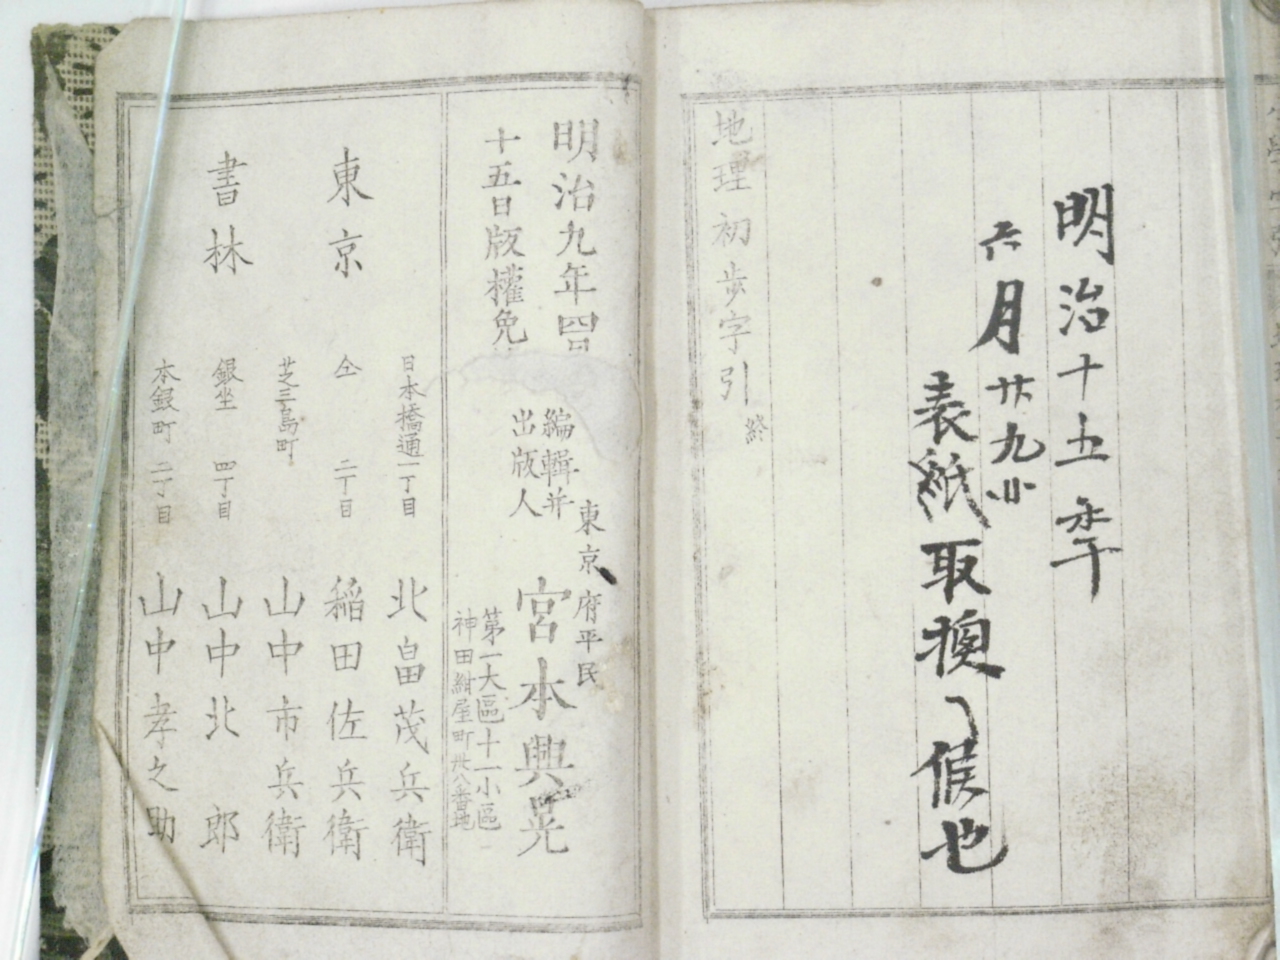 明治十五年
六月廿九日
表紙取換候也
地理初歩字引終
明治九年四
十五日版權免
編輯并
出版人
東京府平民
宮木興晃
第一大區十一小區
神田紺屋町卅八番地
東京
書林
日本橋通一丁目 北畠茂兵衛
仝 二丁目 稲田佐兵衛
芝三島町 山中市兵衛
銀坐四丁目 山中北郎
本銀町二丁目 山中孝之助